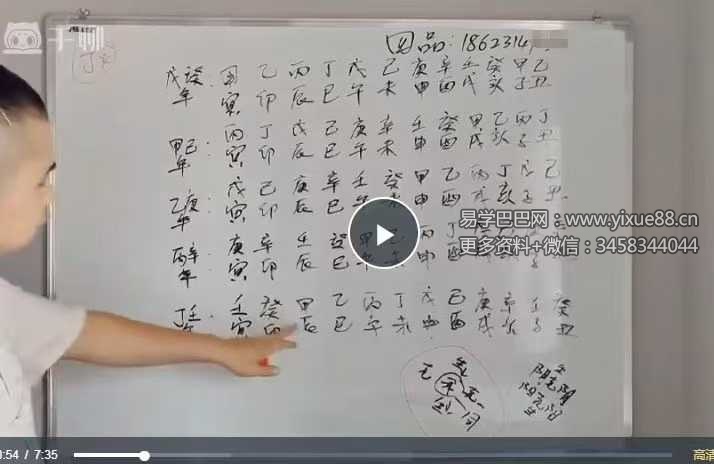 千聊
品:1862314
戊癸 乙 丙 丁 戊 己 庚 辛 壬 癸 甲 乙
年: 寅 卯 辰 巳 午 未 申 酉 戌 亥 子 丑
甲己 丙 丁 戊 己 庚 辛 壬 癸 甲 乙 丙 丁
年: 寅 卯 辰 巳 午 未 申 酉 戌 亥 子 丑
乙庚 戊 己 庚 辛 壬 癸 甲 乙 丙 丁 戊 己
年: 寅 卯 辰 巳 午 未 申 酉 戌 亥 子 丑
易学巴巴网:www.yixue88.cn
更多资料+微信:3458344044
丙辛 庚 辛 壬 癸 甲 乙 丙 丁
年: 寅 卯 辰 巳 午 未 申 酉
丁壬 壬 癸 甲 乙 丙 丁 戊 己 庚 辛 壬 癸
年: 寅 卯 辰 巳 午 未 申 酉 戌 亥 子 丑
:54 / 7:35
高清